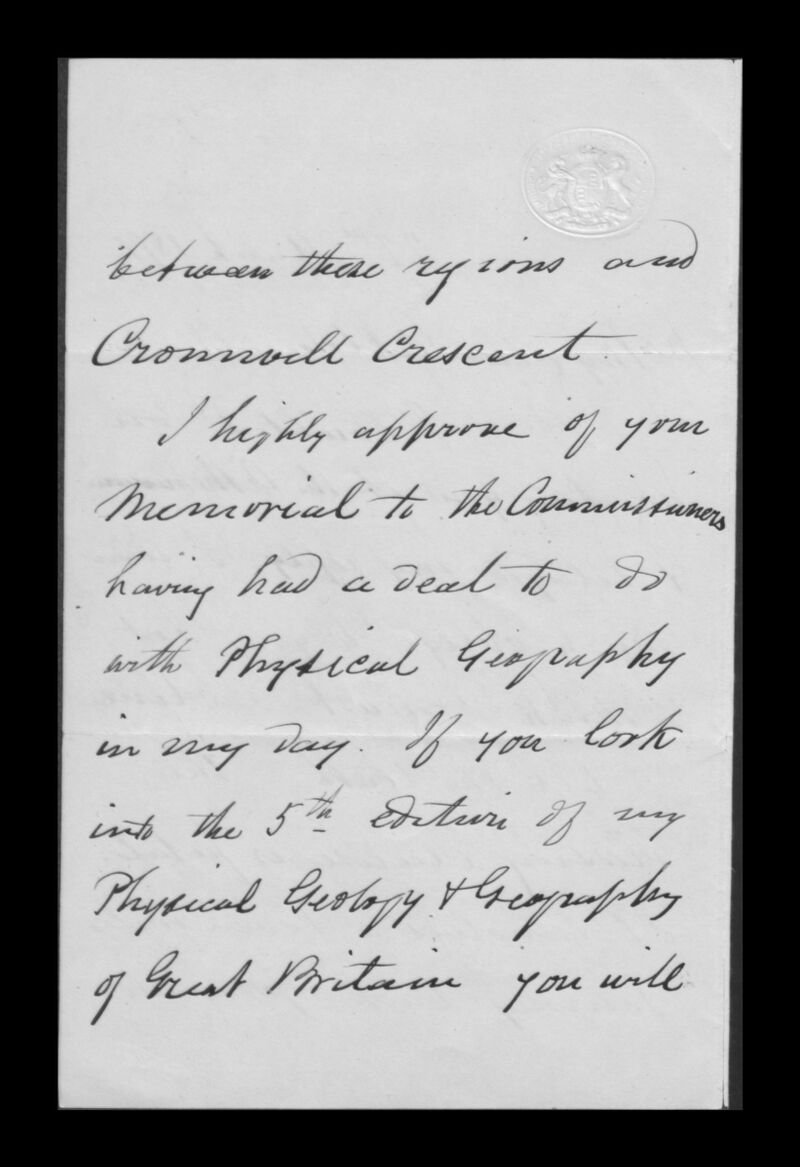 between these regions and
Cromwell Crescent.
I highly approve of your
Memorial to the Commissioners
having had a deal to do
with Physical Geography
in my day. If you look
into the 5th edition of my
Physical Geology & Geography
of Great Britain you will